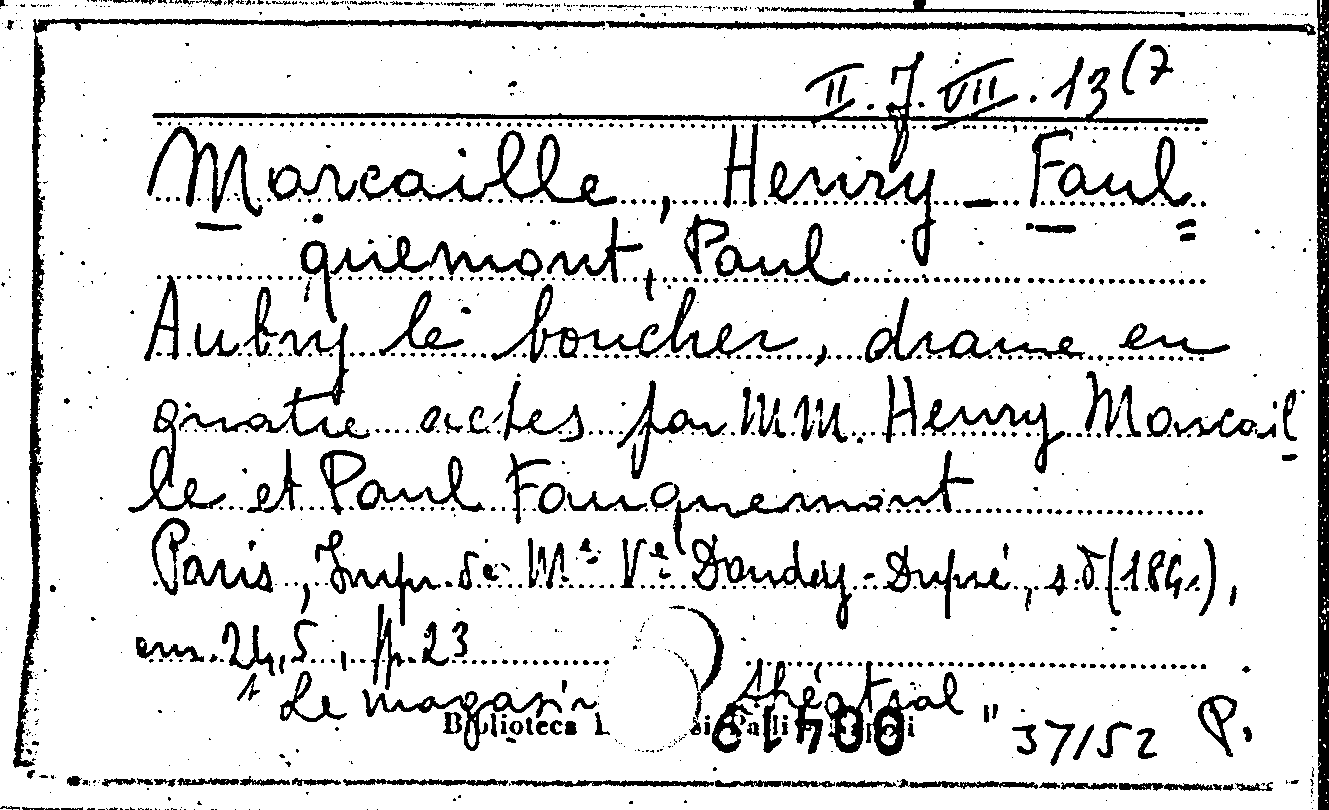 II. J. VII. 13(7
Marcaille, Henry - Faul
quemont, Paul
Aubry le boucher, drame en
quatre actes par MM. Henry Marcail
le et Paul Fauquemont
Paris, Imp. de Me Ve Dondey-Dupré, s.d (184.),
cm. 24,5, pp. 23
"Le magasin théatral"
Biblioteca
37/52 P.